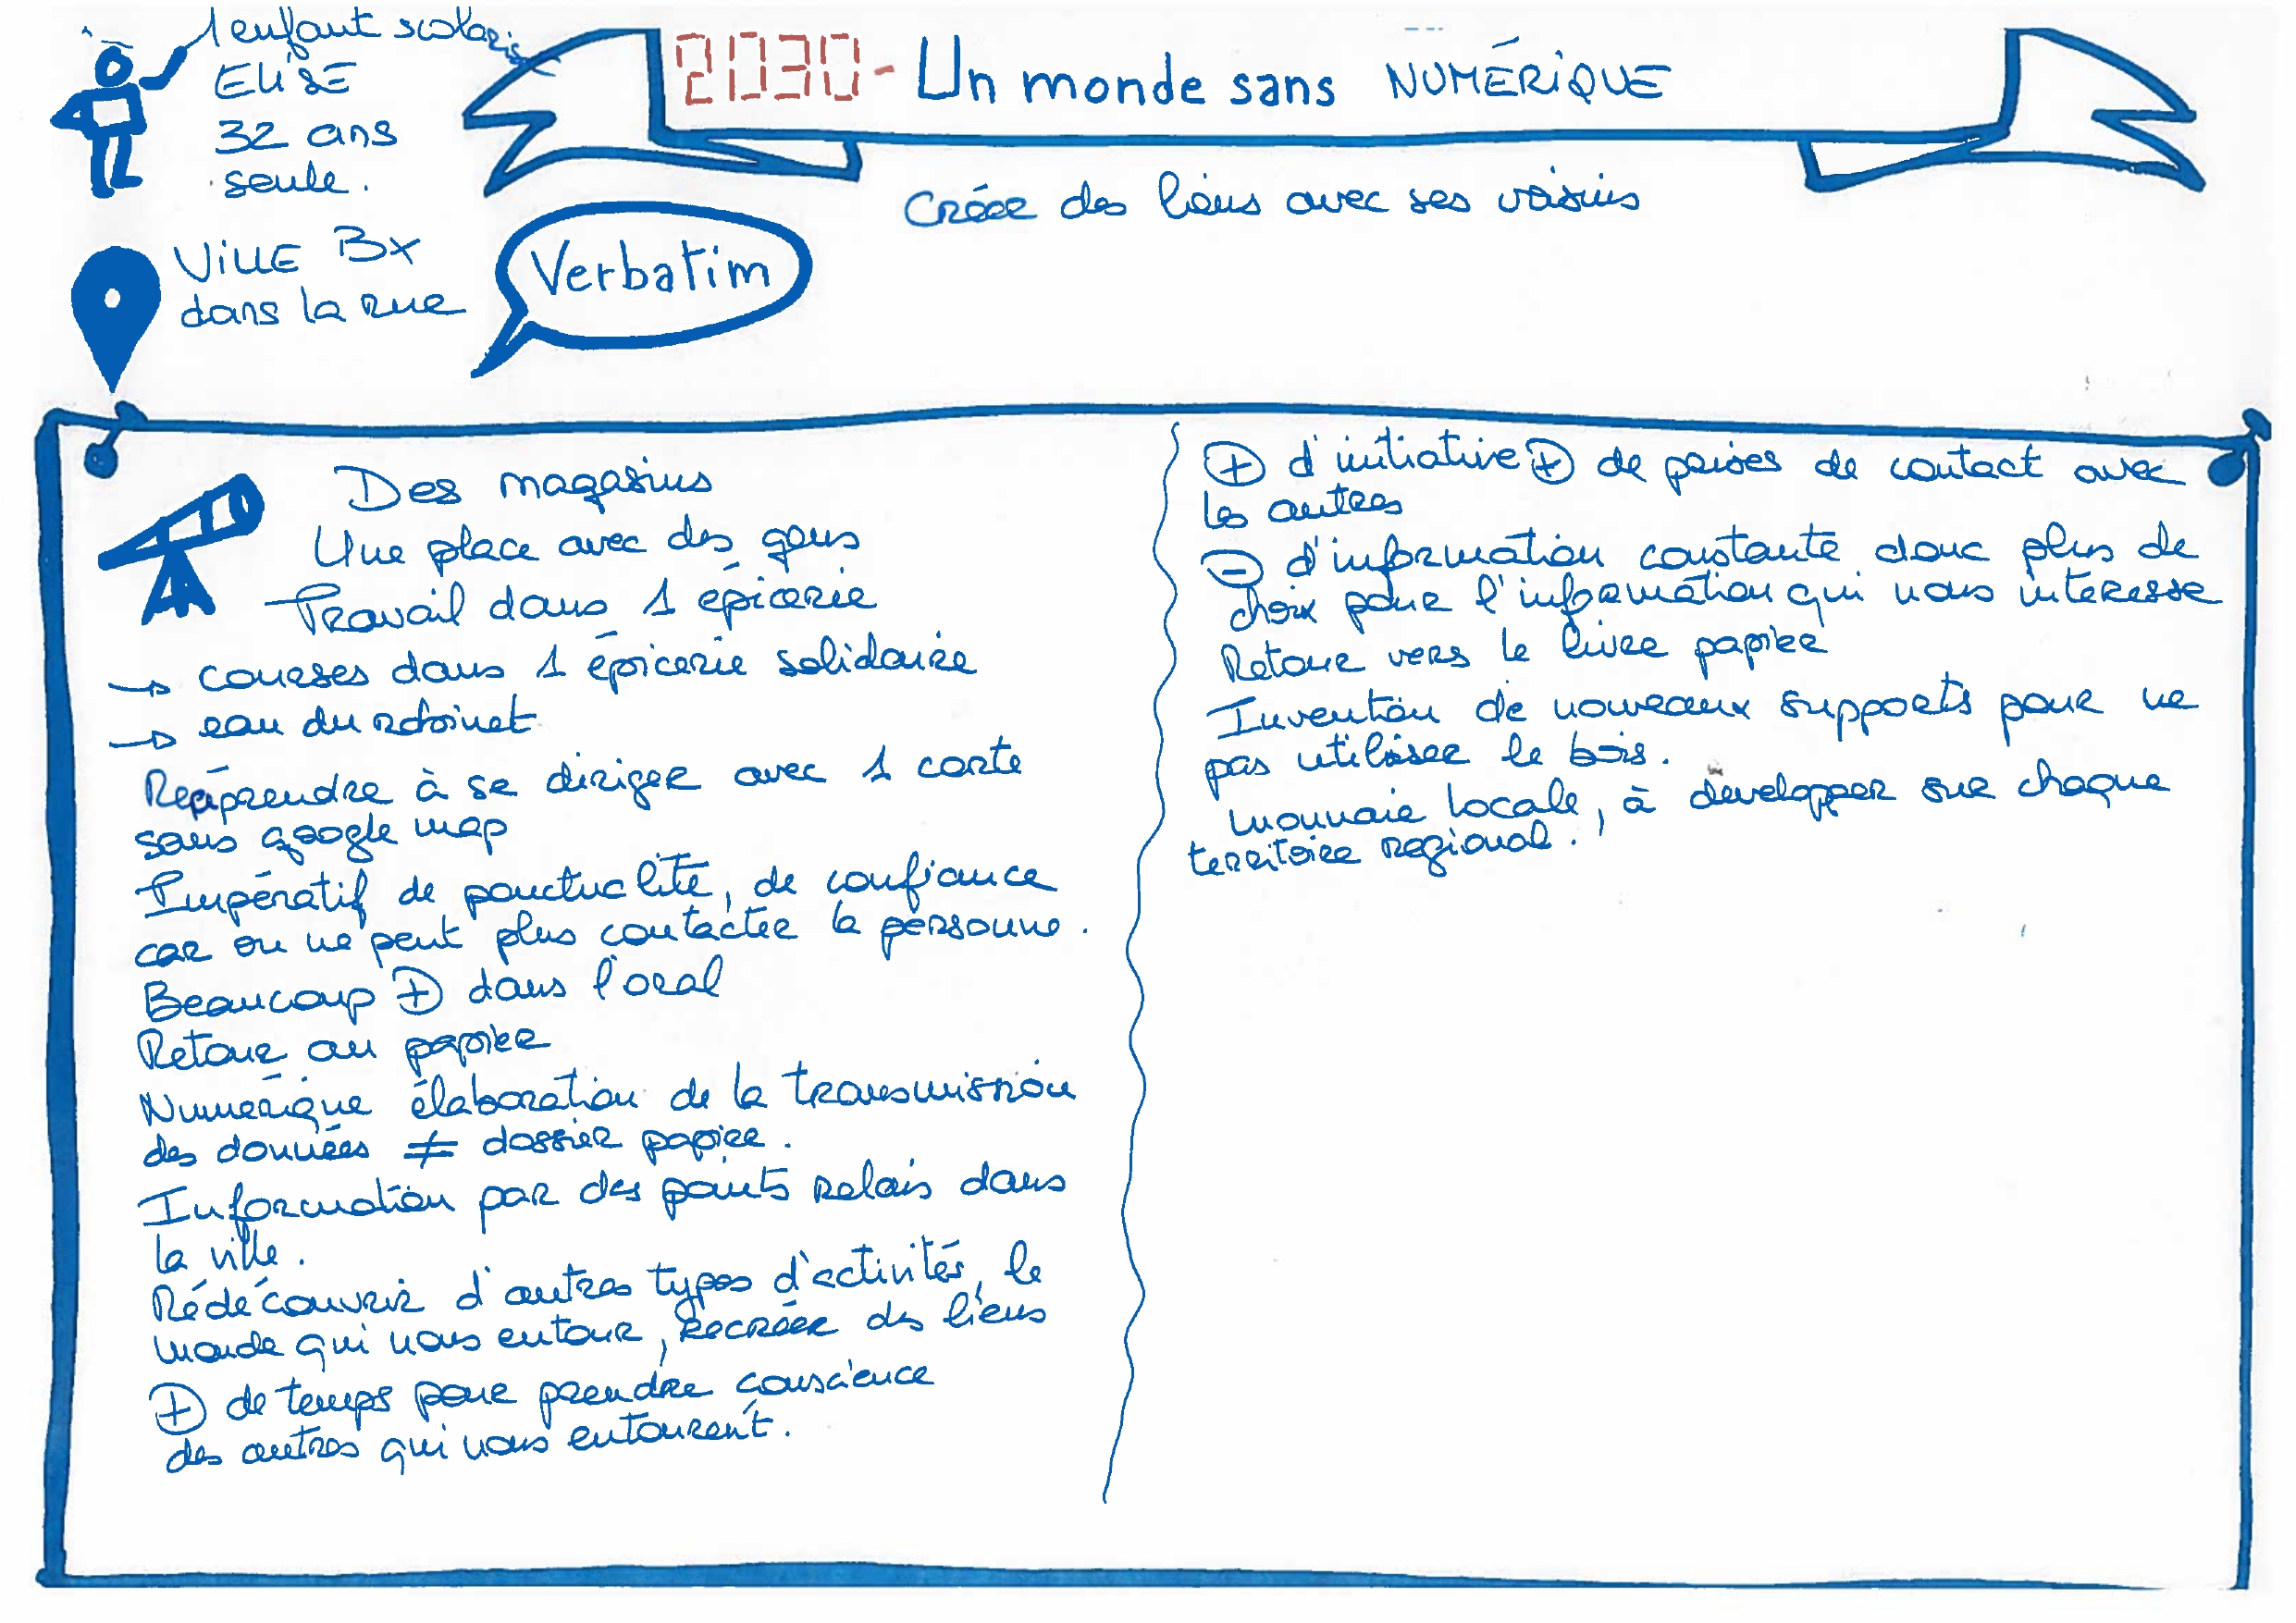 1 enfant scolarisé
ELISE
32 ans
seule.
VILLE Bx
dans la rue
2030 - Un monde sans NUMÉRIQUE
Créer des liens avec ses voisins
Verbatim
Des magasins
Une place avec des gens
Travail dans 1 épicerie
→ courses dans 1 épicerie solidaire
→ eau du robinet
Réapprendre à se diriger avec 1 carte
sans google map
Impératif de ponctualité, de confiance
car on ne peut plus contacter la personne.
Beaucoup + dans l'oral
Retour au papier
Numérique élaboration de la transmission
des données ≠ dossier papier.
Information par des points relais dans
la ville.
Rédécouvrir d'autres types d'activités, le
monde qui nous entour, recréer des liens
+ de temps pour prendre conscience
des autres qui nous entourent.
+ d'initiative + de prises de contact avec
les autres
- d'information constante donc plus de
choix pour l'information qui nous interesse
Retour vers le livre papier
Invention de nouveaux supports pour ne
pas utiliser le bois.
Monnaie locale, à developper sur chaque
territoire regional.